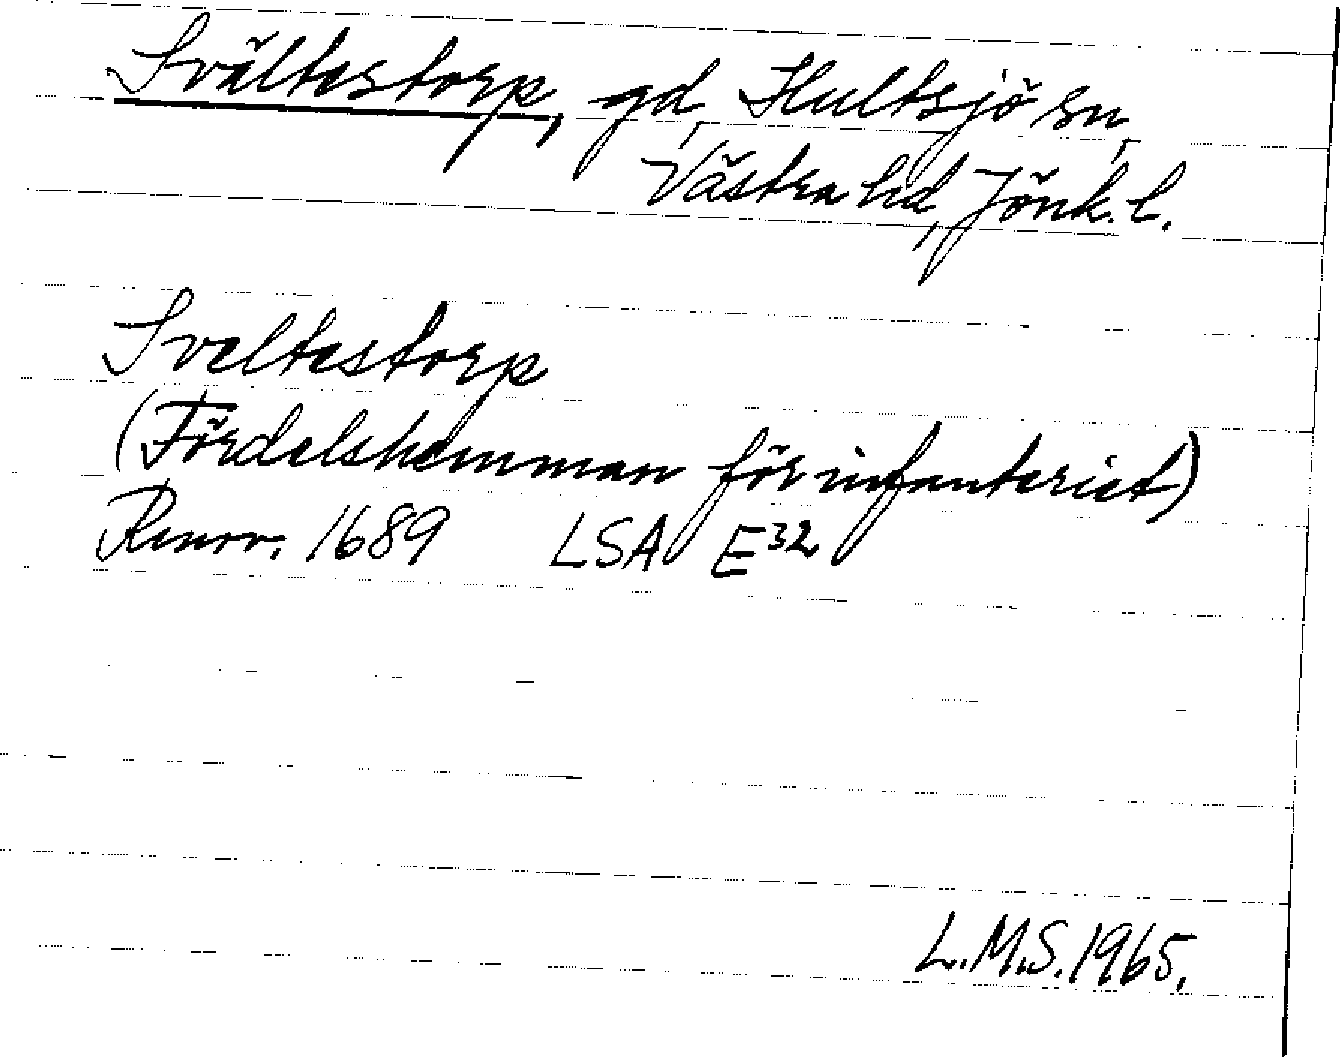 Svältestorp, gd, Hultsjö sn,
Västra hd, Jönk. l.
Sveltestorp
(Fördelshemman för infanteriet)
Renov. 1689 LSA E32
L.M.S. 1965.